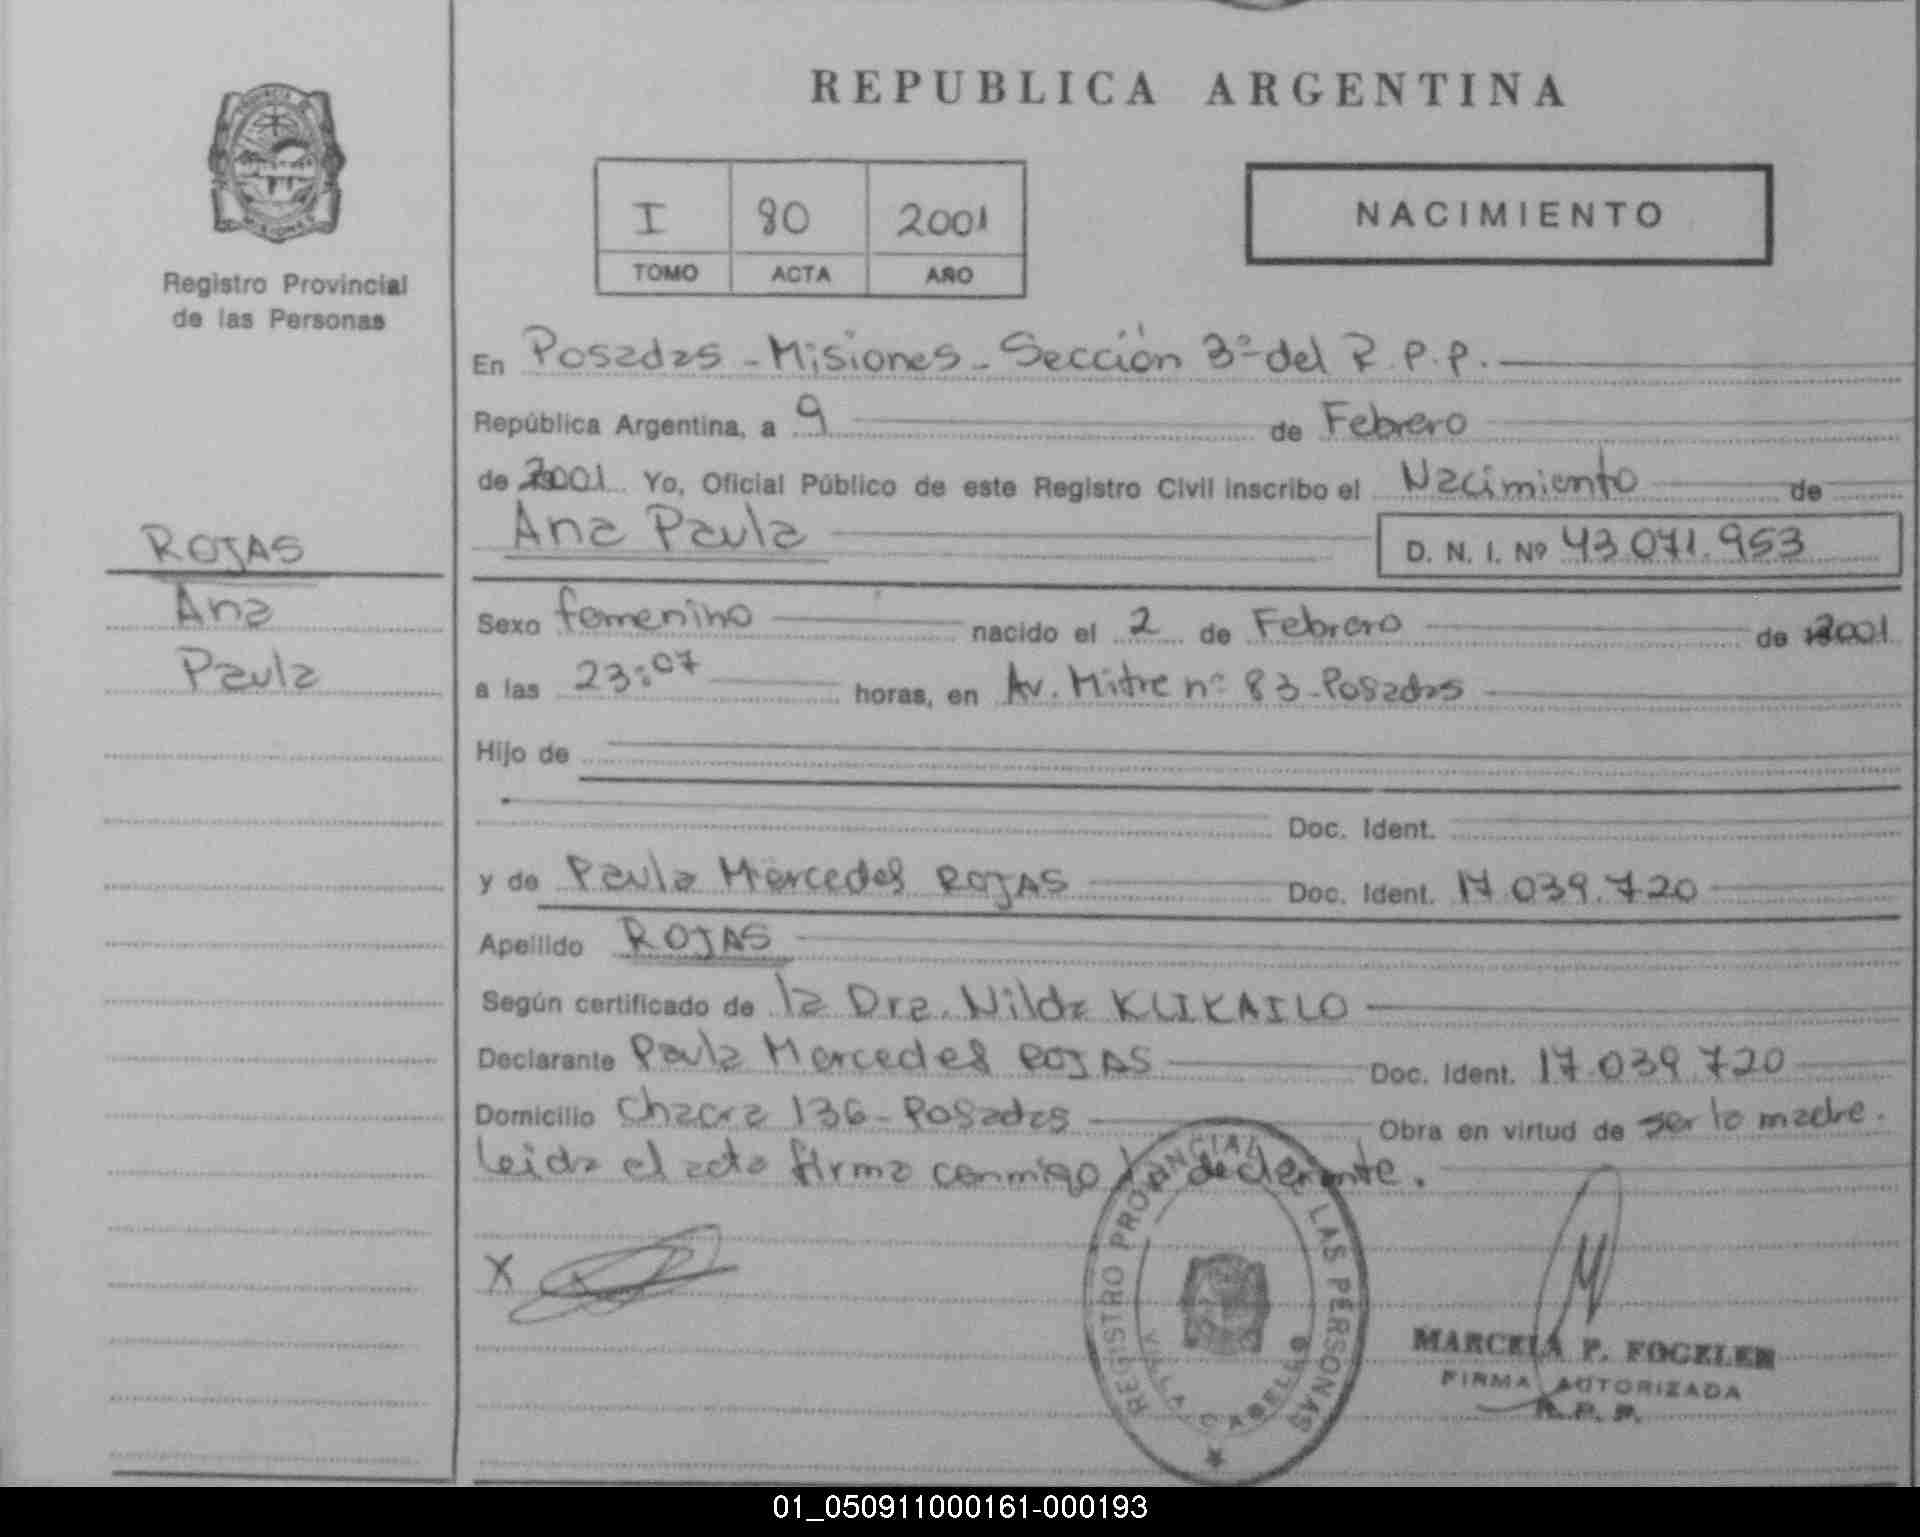 REPUBLICA ARGENTINA
I 80 2001
TOMO ACTA AÑO
NACIMIENTO
Registro Provincial
de las Personas
ROJAS
Ana
Paula
En Posadas - Misiones - Sección 3º del R.P.P.
República Argentina, a 9 de Febrero
de 2001 Yo, Oficial Público de este Registro Civil inscribo el Nacimiento de
Ana Paula D. N. I. Nº 43.071.953
Sexo femenino nacido el 2 de Febrero de 2001
a las 23:07 horas, en Av. Mitre nº 83 - Posadas
Hijo de
Doc. Ident.
y de Paula Mercedes ROJAS Doc. Ident. 17.039.720
Apellido ROJAS
Según certificado de la Dra. Nilda KLIKAILO
Declarante Paula Mercedes ROJAS Doc. Ident. 17.039.720
Domicilio Chacra 136 - Posadas Obra en virtud de ser la madre.
Leida el acta firma conmigo la declarante.
X
REGISTRO PROVINCIAL LAS PERSONAS
VILLA CABELLO
MARCELA P. FOGELER
FIRMA AUTORIZADA
R. P. P.
01_050911000161-000193